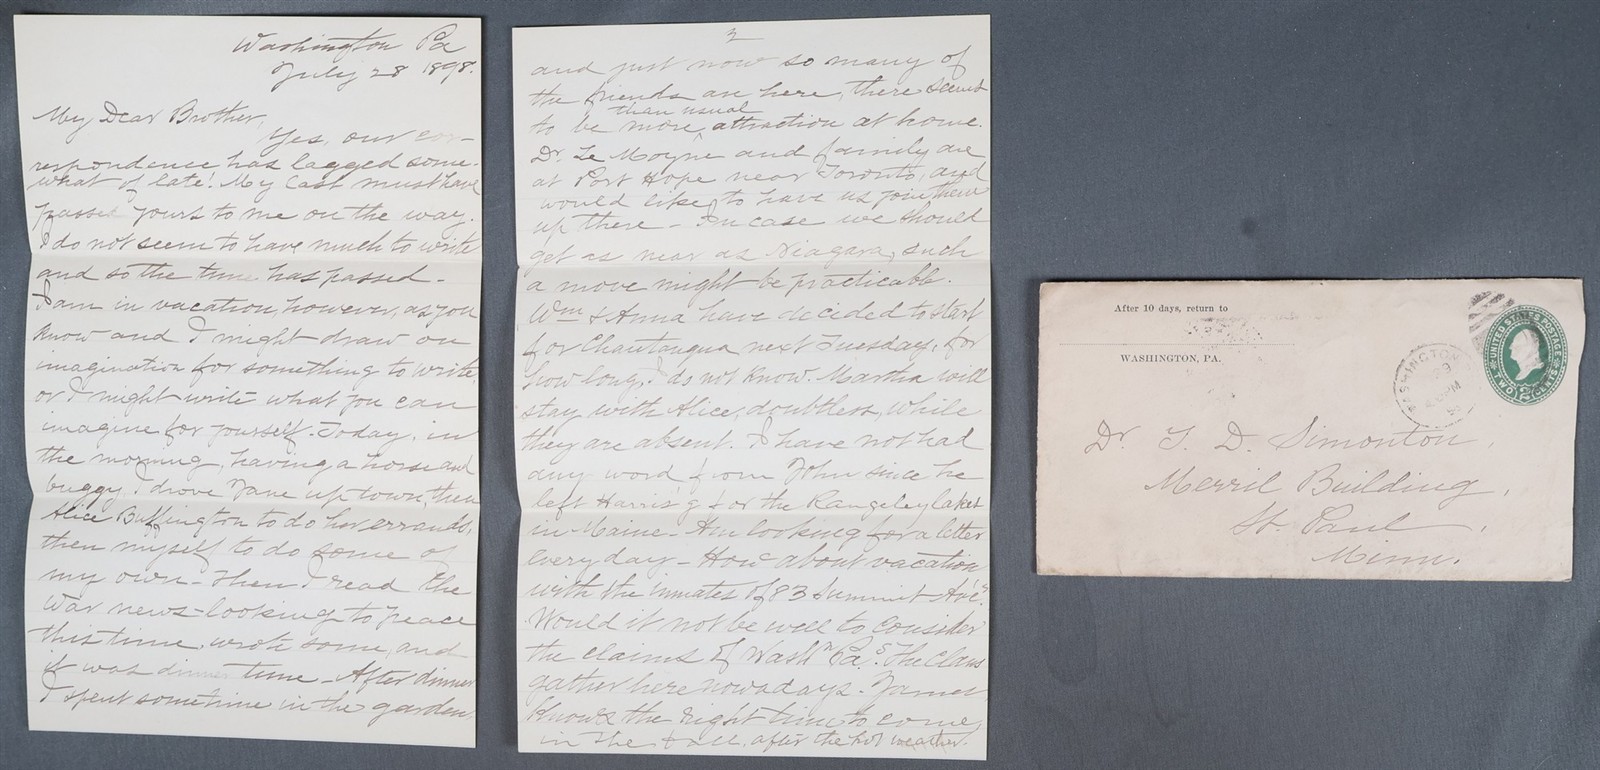 Washington Pa
July 28 1898.
My Dear Brother,
Yes, our cor-
respondence has lagged some-
what of late! My last must have
passed yours to me on the way.
I do not seem to have much to write
and so the time has passed -
I am in vacation, however, as you
know and I might draw on
imagination for something to write,
or I might write what you can
imagine for yourself. Today, in
the morning, having a horse and
buggy I drove Jane up town, then
Alice Buffington to do her errands,
then myself to do some of
my own - Then I read the
war news - looking to peace
this time, wrote some, and
it was dinner time - After dinner
I spent some time in the garden
2
and just now so many of
the friends are here, there seems
than usual
to be more, attraction at home.
Dr. Le Moyne and family are
at Port Hope near Toronto, and
would like to have us join them
up there - In case we should
get as near as Niagara, such
a move might be practicable.
Wm & Anna have decided to start
for Chautauqua next Tuesday, for
how long, I do not know. Martha will
stay with Alice, doubtless, while
they are absent. I have not had
any word from John since he
left Harris'g for the Rangeley lakes
in Maine - Am looking for a letter
every day - How about vacation
with the inmates of 83 Summit Ave.
Would it not be well to consider
the claims of Wash'n Pa. The Clans
gather here nowadays. James
knows the right time to come,
in the fall, after the hot weather.
After 10 days, return to
WASHINGTON, PA.
UNITED STATES POSTAGE
TWO 2 CENTS
WASHINGTON
29
PM
Dr. T. D. Simonton,
Merril Building,
St. Paul,
Minn.